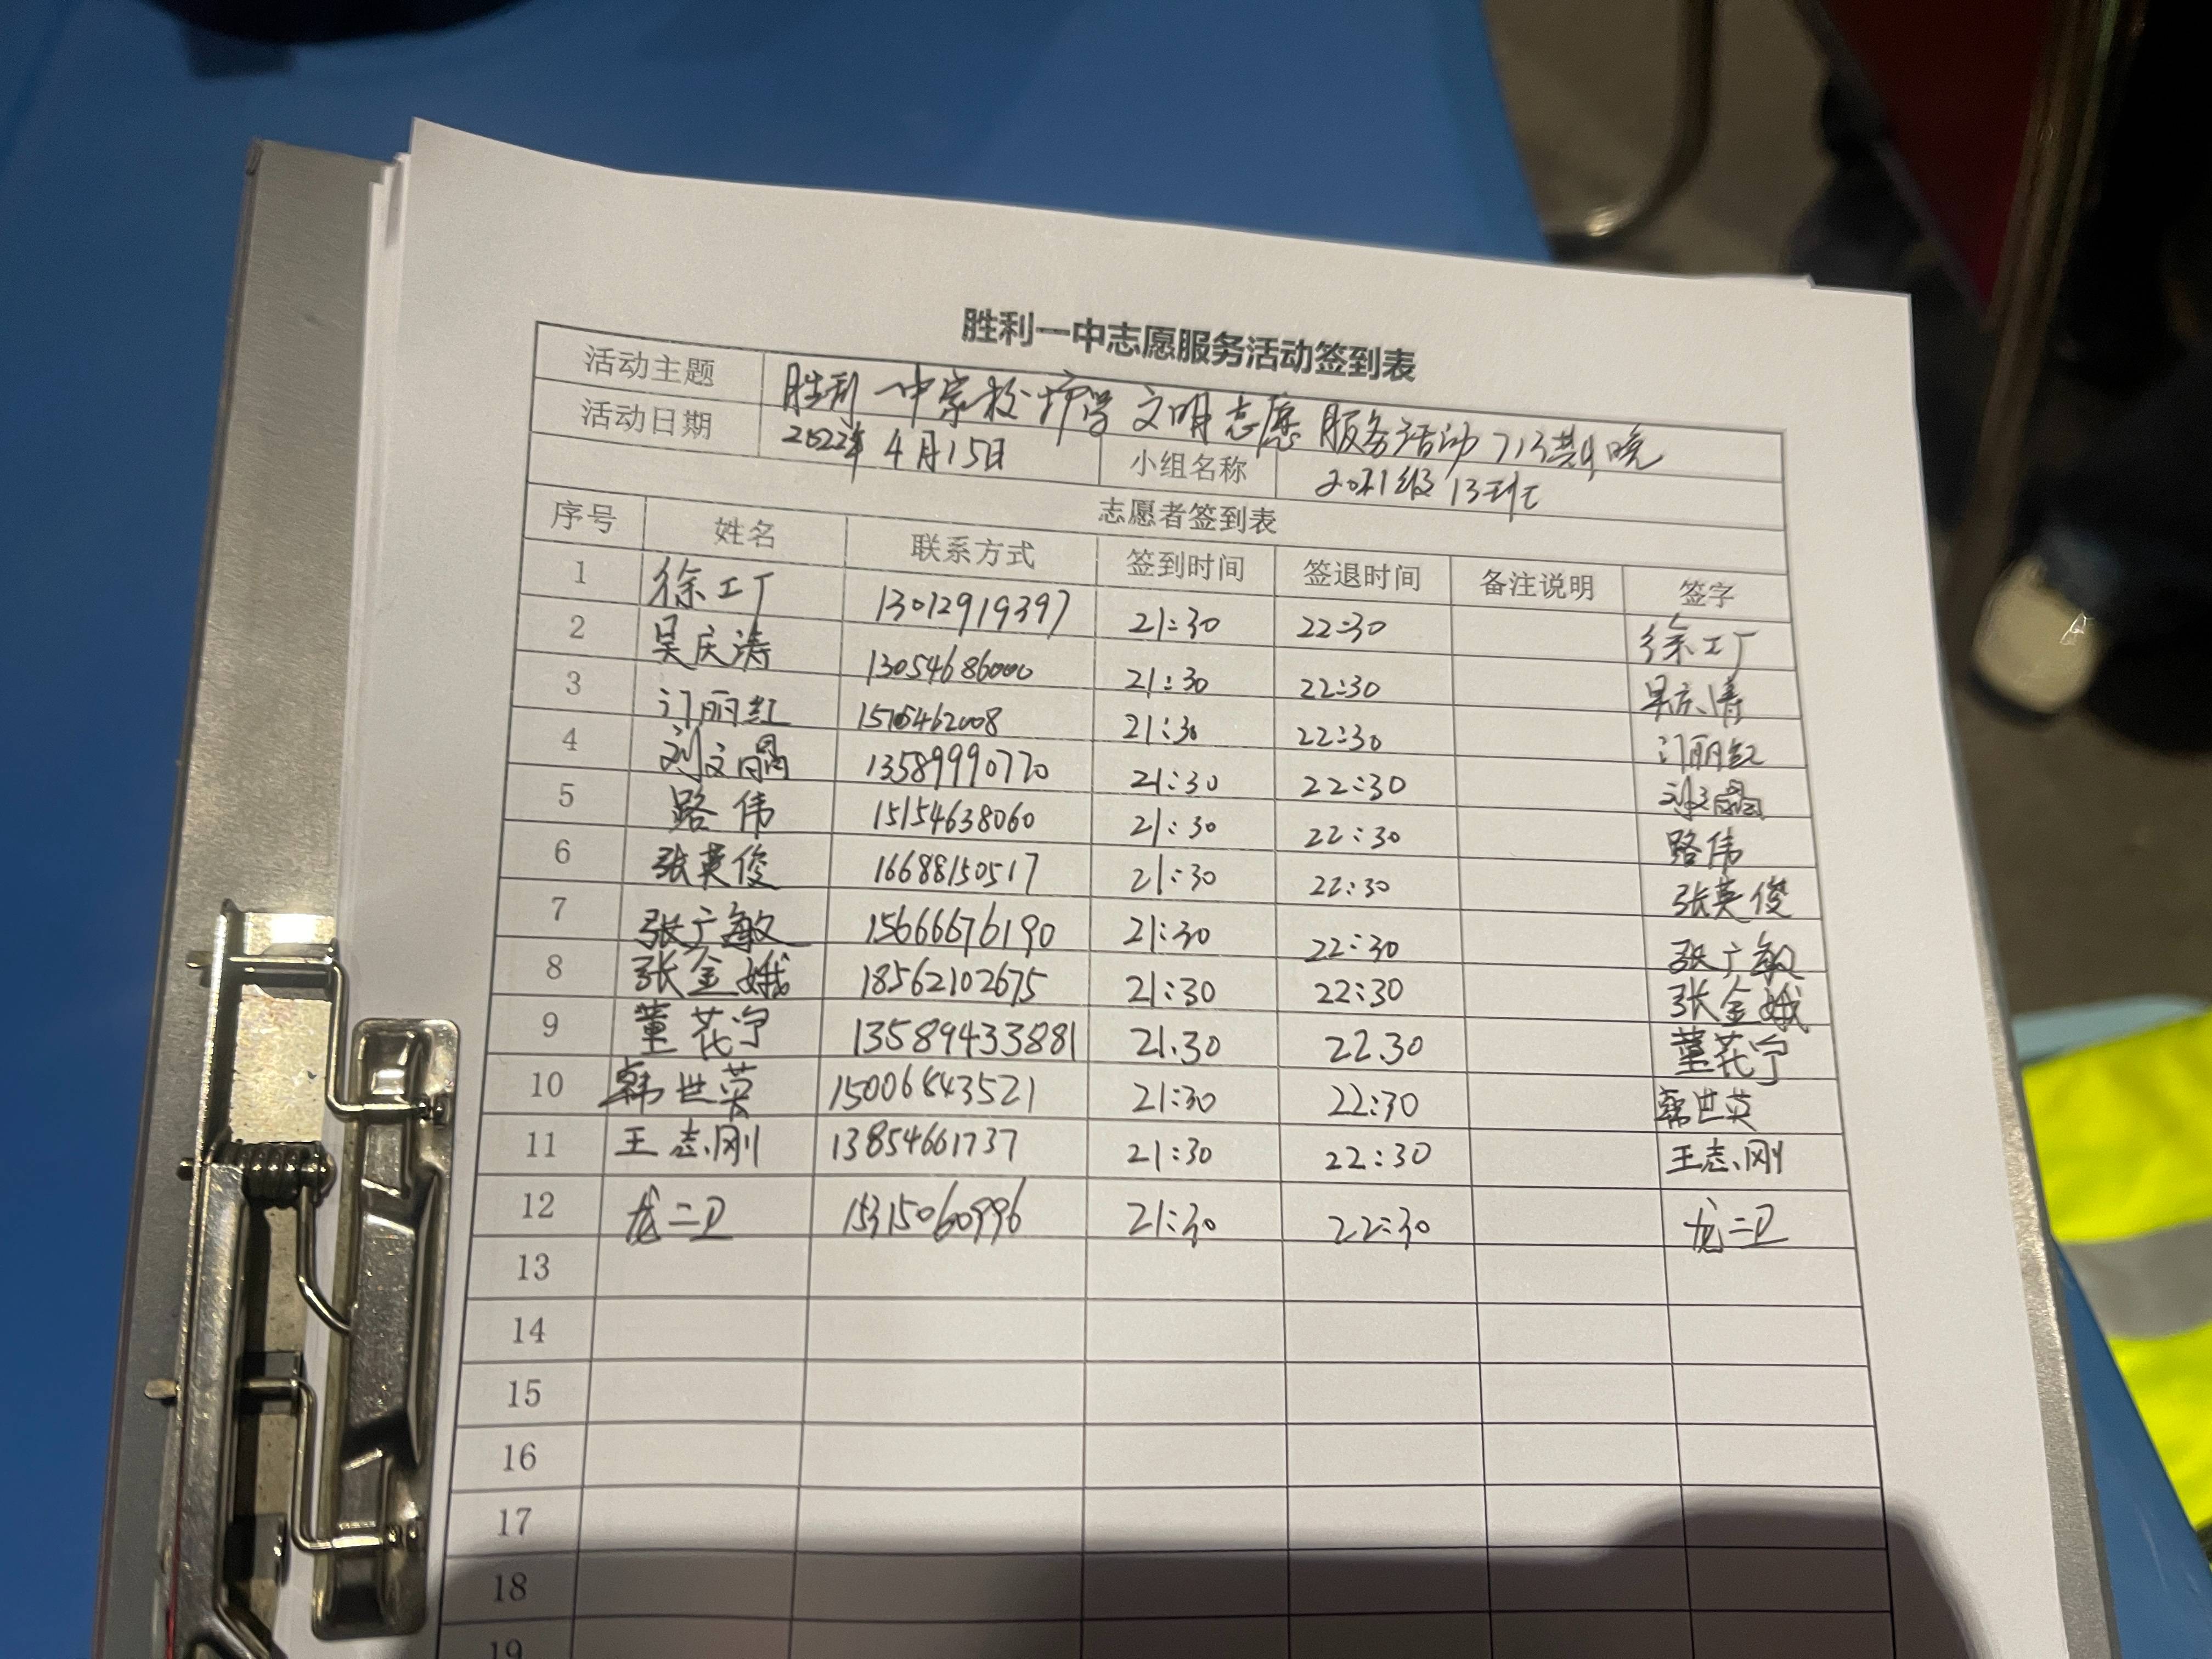 胜利一中志愿服务活动签到表
活动主题 胜利一中家校护学文明志愿服务活动713期晚
活动日期 2022年4月15日 小组名称 2021级13班
志愿者签到表
序号 姓名 联系方式 签到时间 签退时间 备注说明 签字
1 徐工厂 13012919397 21:30 22:30 徐工厂
2 吴庆涛 13054686000 21:30 22:30 吴庆涛
3 门丽红 21:30 22:30 门丽红
4 刘文 13589990770 21:30 22:30 刘文
5 路伟 15154638060 21:30 22:30 路伟
6 张英俊 16688150517 21:30 22:30 张英俊
7 张广敏 15666676190 21:30 22:30 张广敏
8 张金娥 18562102675 21:30 22:30 张金娥
9 董花宁 13589433881 21.30 22.30 董花宁
10 韩世英 15006843521 21:30 22:30 韩世英
11 王志刚 13854661737 21:30 22:30 王志刚
12 龙二卫 15315060996 21:30 22:30 龙二卫
13
14
15
16
17
18
19